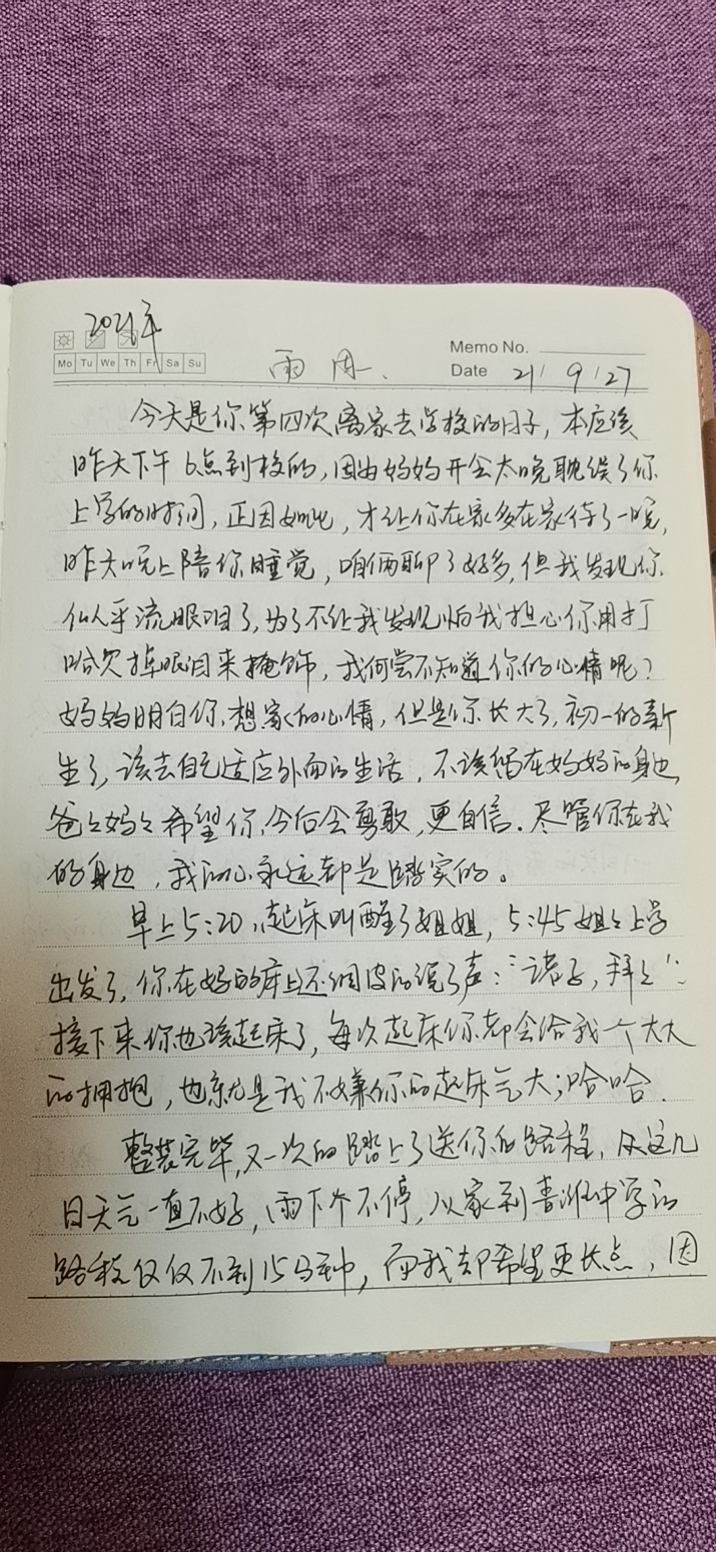 2021年
Mo Tu We Th Fr Sa Su
Memo No.
Date 21/ 9 /27
雨 周一.
今天是你第四次离家去学校的日子，本应该
昨天下午6点到校的，因为妈妈开会太晚耽误了你
上学的时间，正因如此，才让你在家多在家待了一晚，
昨天晚上陪你睡觉，咱俩聊了好多，但我发现你
似乎流眼泪了，为了不让我发现怕我担心你用打
哈欠掉眼泪来掩饰，我何尝不知道你的心情呢？
妈妈明白你想家的心情，但是你长大了，初一的新
生了，该去自己适应外面的生活，不该留在妈妈的身边，
爸々妈々希望你今后会勇敢，更自信。尽管你在我
的身边，我的心永远都是踏实的。
早上5:20，起床叫醒了姐姐，5:45姐々上学
出发了，你在妈的床上还调皮的说了声：“诸子，拜々”.
接下来你也该起床了，每次起床你都会给我一个大大
的拥抱，也就是我不嫌你的起床气大；哈哈.
整装完毕，又一次的踏上了送你的路程，从这几
日天气一直不好，雨下个不停，从家到中学的
路程仅仅不到15分钟，而我却希望更长点，因